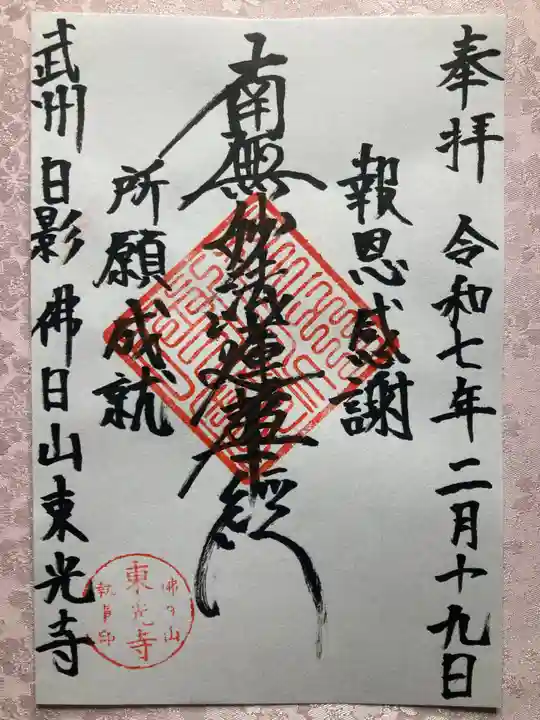 奉拝 令和七年二月十九日
報恩感謝
南無妙法蓮華経
所願成就
武州 日影 佛日山東光寺
佛日山
東光寺
執事印